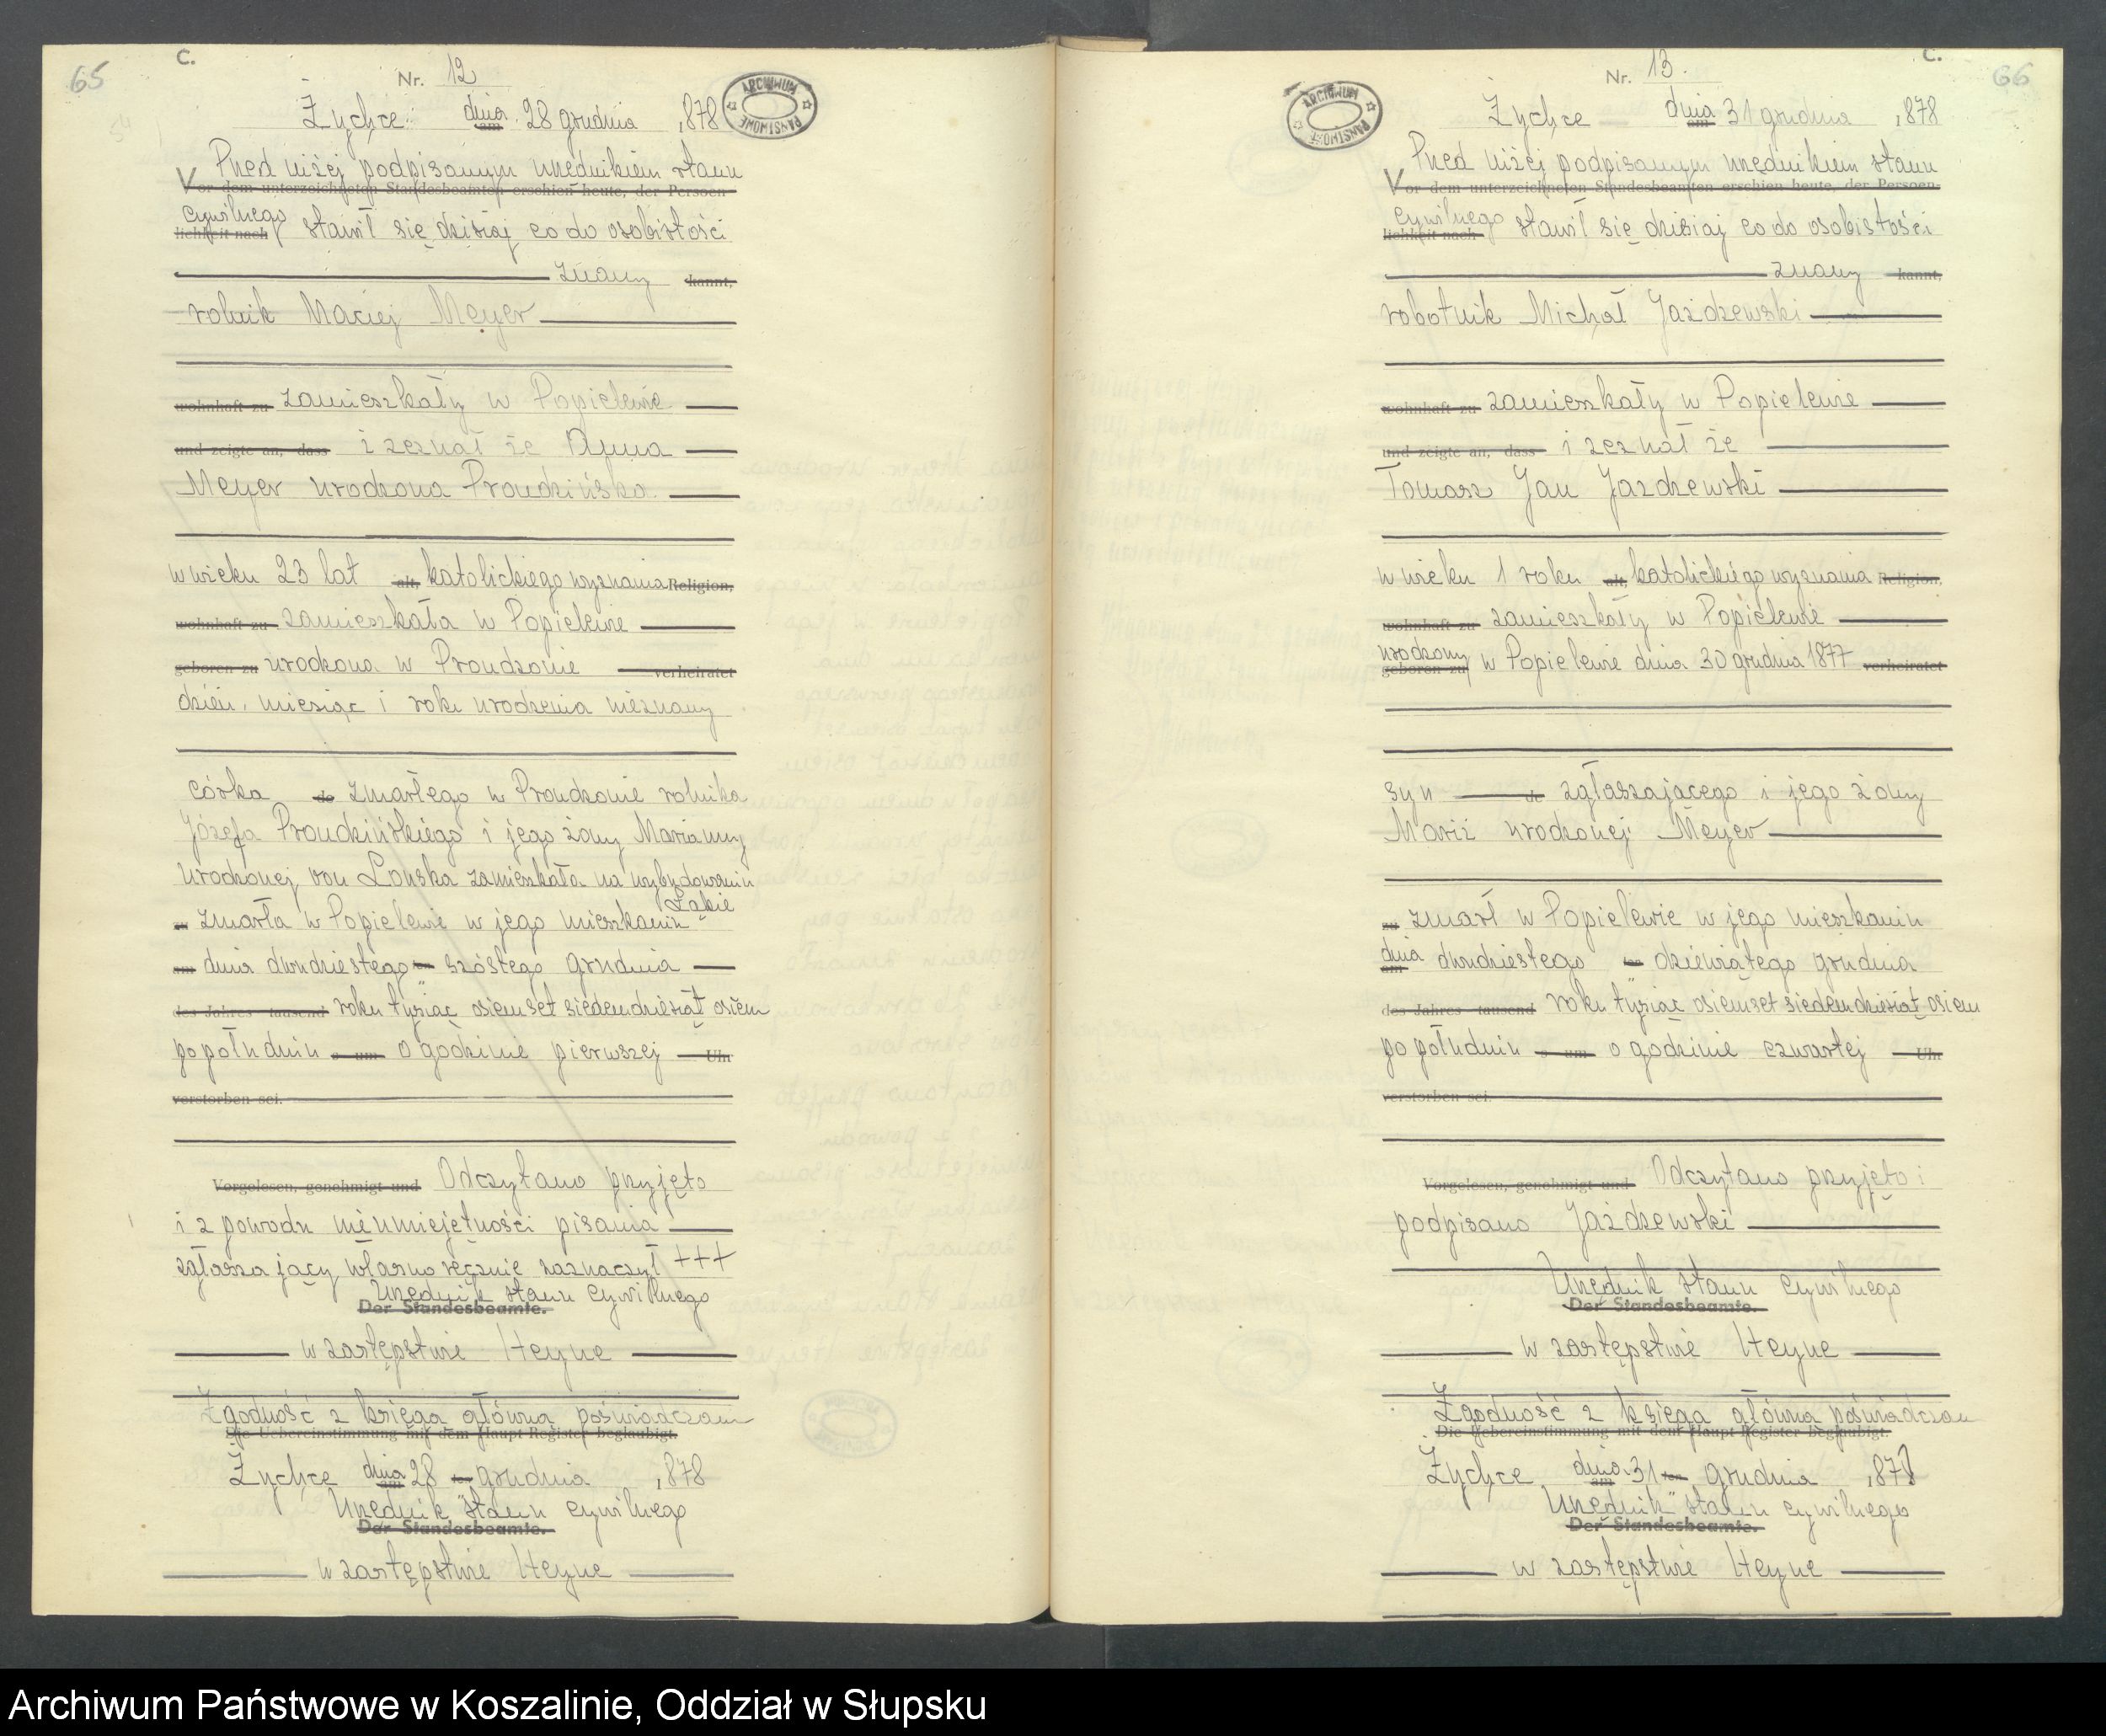 65
C.
Nr. 12
ARCHIWUM PAŃSTWOWE
Żychce dnia am 28 grudnia 1878
Przed niżej podpisanym urzędnikiem stanu
Vor dem unterzeichneten Standesbeamten erschien heute, der Persoen-
cywilnego lichkeit nach stawił się dzisiaj co do osobistości
znany kannt,
rolnik Maciej Meyer
wohnhaft zu zamieszkały w Popielewie
und zeigte an, dass i zeznał że Anna
Meyer urodzona Prondzińska
w wieku 23 lat alt, katolickiego wyznania Religion,
wohnhaft zu zamieszkała w Popielewie
geboren zu urodzona w Prondzonie verheiratet
dzień, miesiąc i rok urodzenia nieznany
córka de zmarłego w Prondzonie rolnika
Józefa Prondzińskiego i jego żony Marianny
urodzonej von Lonska zamieszkała na wybudowaniu
Łąkie
zu zmarła w Popielewie w jego mieszkaniu
am dnia dwudziestego ten szóstego grudnia
des Jahres tausend roku tysiąc osiemset siedemdziesiąt osiem
popołudniu um o godzinie pierwszej Uhr
verstorben sei.
Vorgelesen, genehmigt und Odczytano przyjęto
i z powodu nieumiejętności pisania
zgłaszający własnoręcznie zaznaczył +++
Urzędnik stanu cywilnego
Der Standesbeamte.
w zastępstwie Heyne
Zgodność z księgą główną poświadczam
Die Uebereinstimmung mit dem Haupt-Register beglaubigt.
Żychce dnia am 28 ten grudnia 1878
Urzędnik stanu cywilnego
Der Standesbeamte.
w zastępstwie Heyne
66
C.
Nr. 13.
ARCHIWUM PAŃSTWOWE
Żychce dnia am 31 grudnia 1878
Przed niżej podpisanym urzędnikiem stanu
Vor dem unterzeichneten Standesbeamten erschien heute, der Persoen-
cywilnego lichkeit nach stawił się dzisiaj co do osobistości
znany kannt,
robotnik Michał Jażdzewski
wohnhaft zu zamieszkały w Popielewie
und zeigte an, dass i zeznał że
Tomasz Jan Jazdzewski
w wieku 1 roku alt, katolickiego wyznania Religion,
wohnhaft zu zamieszkały w Popielewie
urodzony geboren zu w Popielewie dnia 30 grudnia 1877 verheiratet
syn de zgłaszającego i jego żony
Marii urodzonej Meyer
zu zmarł w Popielewie w jego mieszkaniu
dnia am dwudziestego ten dziewiątego grudnia
des Jahres tausend roku tysiąc osiemset siedemdziesiąt osiem
po południu um o godzinie czwartej Uhr
verstorben sei.
Vorgelesen, genehmigt und Odczytano przyjęto i
podpisano Jażdzewski
Urzędnik stanu cywilnego
Der Standesbeamte.
w zastępstwie Heyne
Zgodność z księgą główną poświadczam
Die Uebereinstimmung mit dem Haupt Register beglaubigt.
Żychce dnia am 31 ten grudnia 1878
Urzędnik stanu cywilnego
Der Standesbeamte.
w zastępstwie Heyne
Archiwum Państwowe w Koszalinie, Oddział w Słupsku